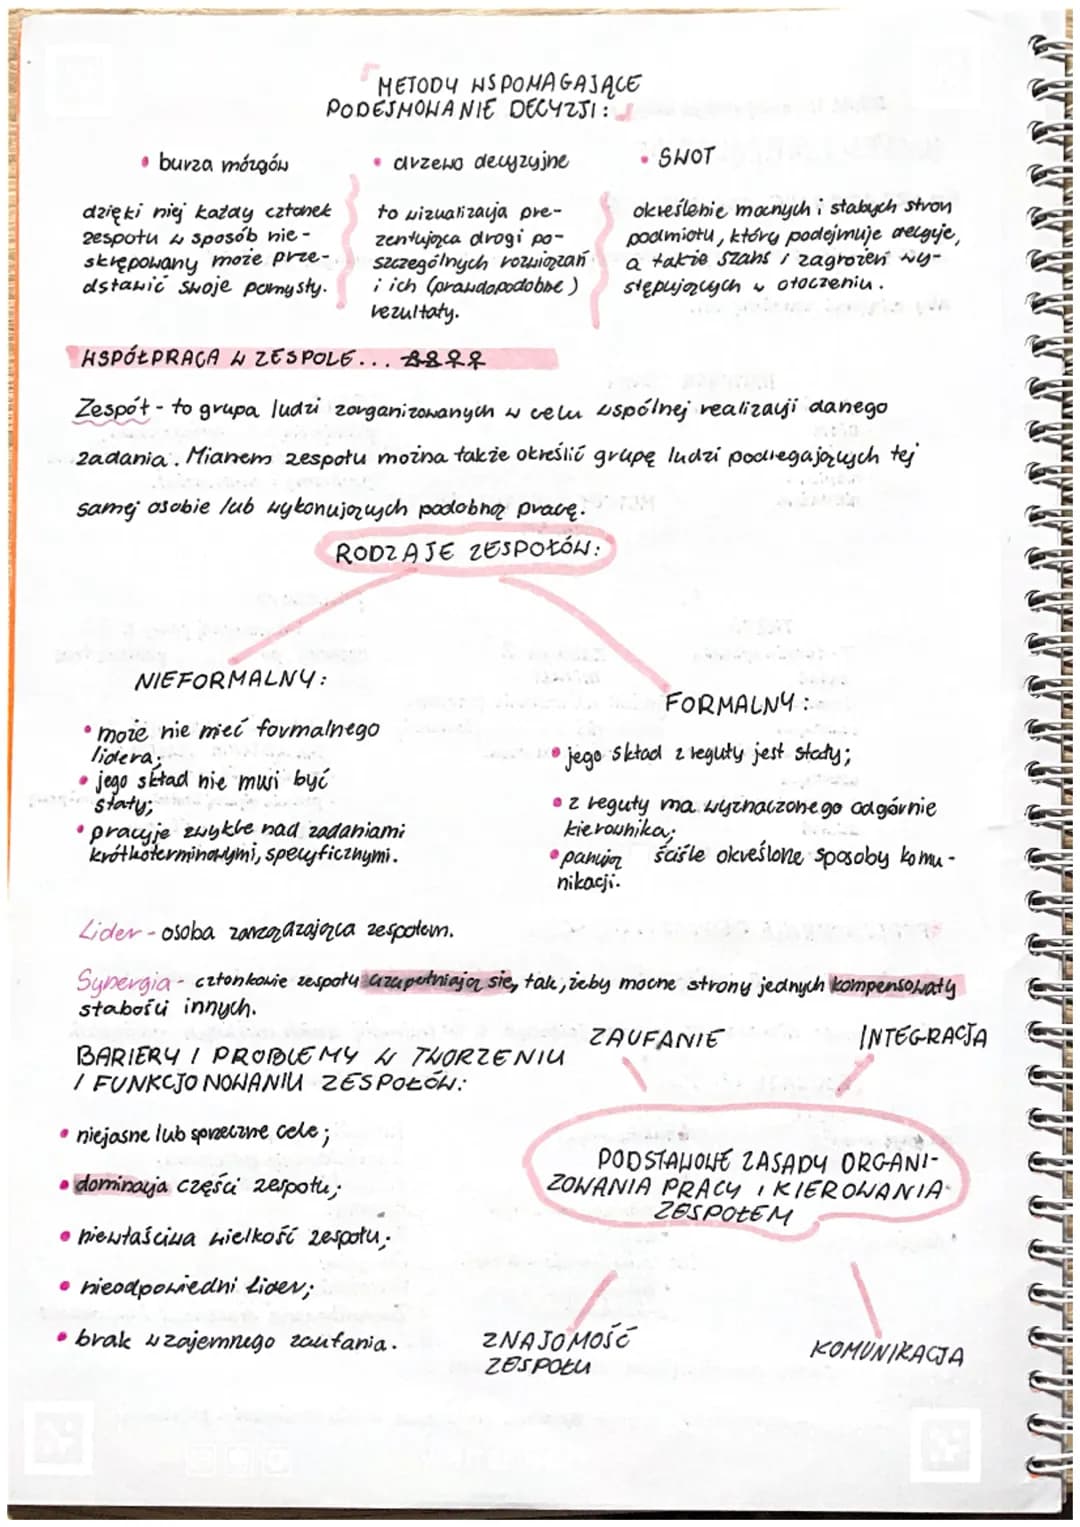 METODY WSPOMAGAJĄCE
PODEJMOWANIE DECYZJI:
• burza mózgów
dzięki niej każdy członek
zespołu w sposób nie-
skrępowany może prze-
dstawić swoje pomysły.
• drzewo decyzyjne
to wizualizacja pre-
zentująca drogi po-
szczególnych rozwiązań
i ich (prawdopodobne)
rezultaty.
• SWOT
określenie mocnych i słabych stron
podmiotu, który podejmuje decyzje,
a także szans i zagrożeń wy-
stępujących w otoczeniu.
WSPÓŁPRACA W ZESPOLE...
Zespół - to grupa ludzi zorganizowanych w celu wspólnej realizacji danego
zadania. Mianem zespołu można także określić grupę ludzi podlegających tej
samej osobie lub wykonujących podobną pracę.
RODZAJE ZESPOŁÓW:
NIEFORMALNY:
• może nie mieć formalnego
lidera;
• jego skład nie musi być
stały;
• pracuje zwykle nad zadaniami
krótkoterminowymi, specyficznymi.
FORMALNY:
• jego skład z reguły jest stały;
• z reguły ma wyznaczonego odgórnie
kierownika;
• panują ściśle określone sposoby komu-
nikacji.
Lider - osoba zarządzająca zespołem.
Synergia - członkowie zespołu uzupełniają się, tak, żeby mocne strony jednych kompensowały
słabości innych.
BARIERY I PROBLEMY W TWORZENIU
I FUNKCJONOWANIU ZESPOŁÓW:
• niejasne lub sprzeczne cele;
• dominacja części zespołu;
• niewłaściwa wielkość zespołu;
• nieodpowiedni lider;
• brak wzajemnego zaufania.
ZAUFANIE
INTEGRACJA
PODSTAWOWE ZASADY ORGANI-
ZOWANIA PRACY I KIEROWANIA
ZESPOŁEM
ZNAJOMOŚĆ
ZESPOŁU
KOMUNIKACJA